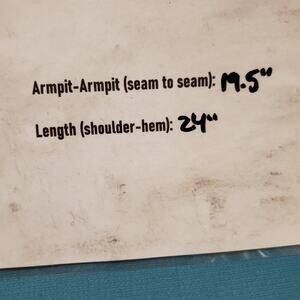 Armpit-Armpit (seam to seam): 19.5"
Length (shoulder-hem): 24"